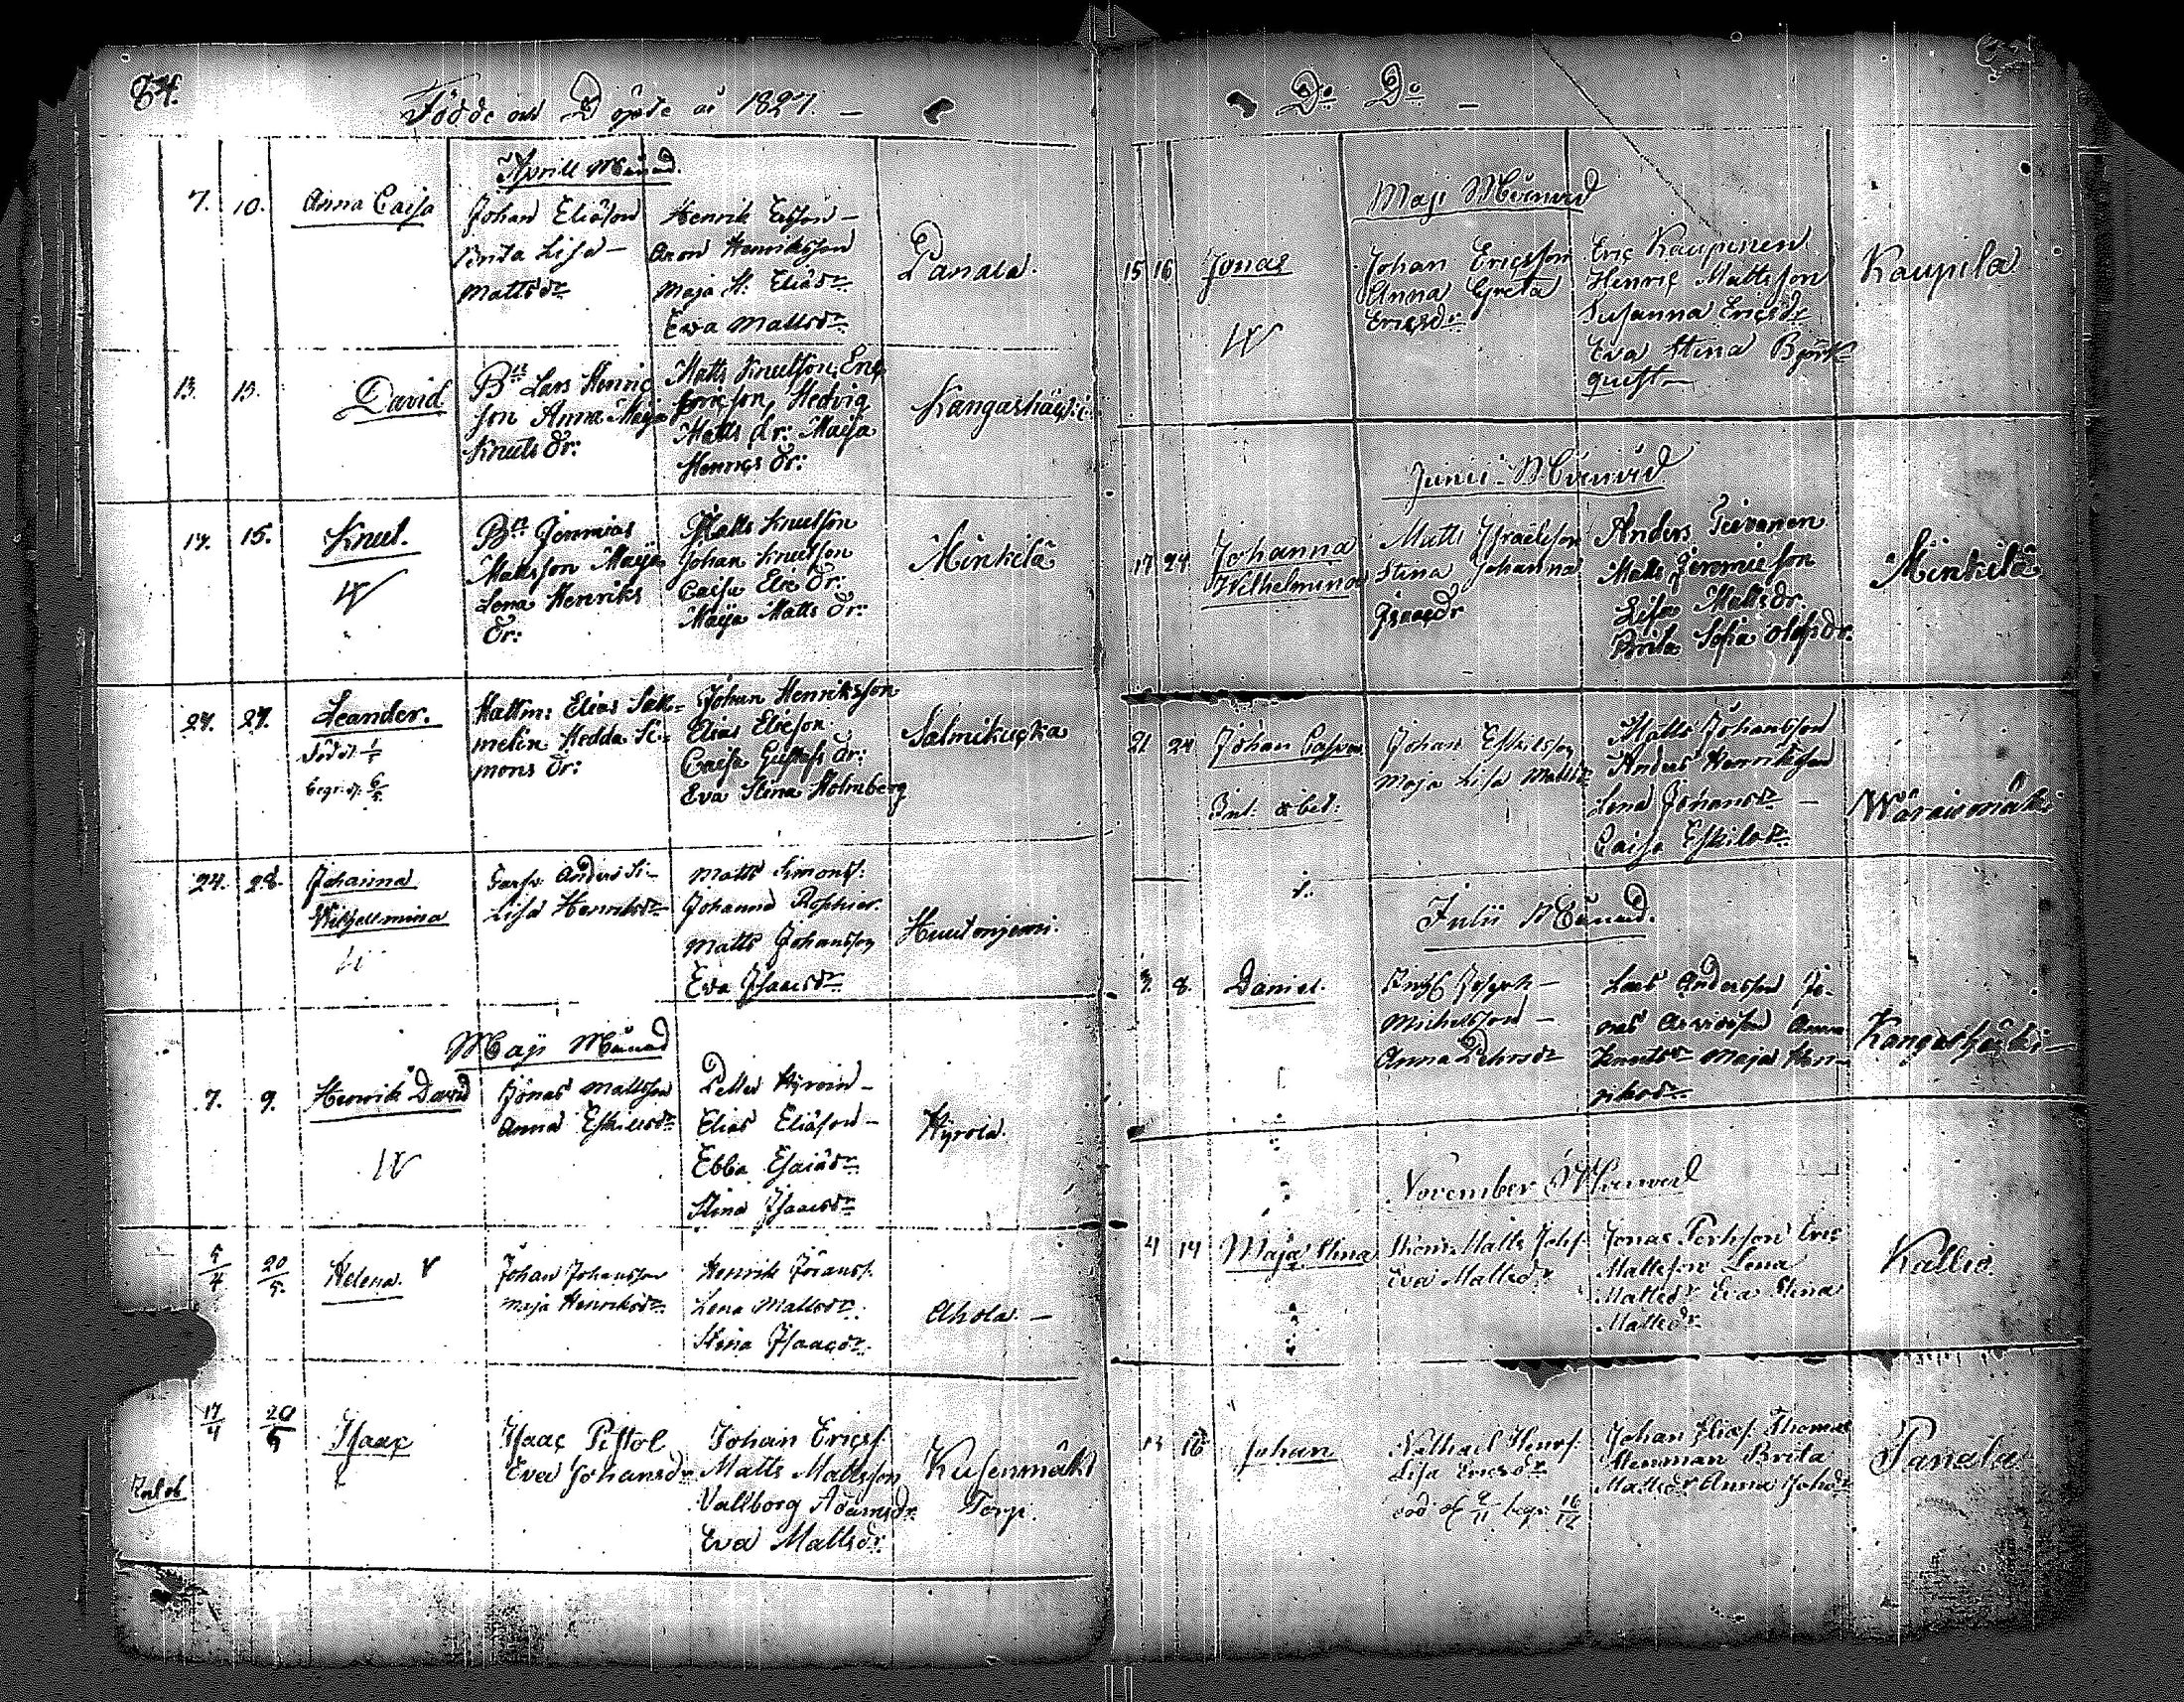 84.
Födde och Döpte år 1827. —
Aprill Månad.
7. 10. Anna Caisa
Johan Eliasson
Brita Lisa —
Mattsdr
Henrik Ersson —
Aron Henriksson
Maja H: Eliasdr
Eva Mattsdr
Panala.
13. 15. David
Bn Lars Henric
son Anna Maja
Knuts dr:
Matts Knutson, Eric
Ericson, Hedvig
Matts dr: Maija
Henrics dr:
Kangashäcki
15. Knut.
Bn Jeremias
Mattsson Maija
Lena Henriks
dr:
Matts Knutsson
Johan Knutsson
Caisa Elie dr:
Maija Matts dr:
Minkilä
27. Leander.
död d. 1/5
begr. d. 6/5
Elias Sal=
melin Hedda Si=
mons dr:
Johan Henriksson
Elias Elieson
Caisa Gustafs dr:
Eva Stina Holmberg
Salmikucka
24. 28. Johanna
Wilhelmina
Anders Si—
Lisa Henriksdr
Matts Simonss.
Johanna
Matts Johansson
Eva Isaacsdr
Huutoniemi.
Maji Månad
7. 9. Henrik David
Jonas Mattsson
Anna Eskilsdr
Petter Hyröin —
Elias Eliasson —
Ebba Esaiasdr
Stina Isaacsdr
Hyrola.
5/4 20/5. Helena.
Johan Johansson
Maja Henriksdr
Henrik Jöranss.
Lena Mattsdr.
Stina Isaacsdr.
Ahola. —
17/4 20/5 Isaac
Isaac Pistol
Eva Johansdr
Johan Ericss.
Matts Mattsson
Vallborg Adamsdr.
Eva Mattsdr.
Kusenmäki
Torp.
Do Do —
Maji Månad
15 16 Jonas
Johan Ericsson
Anna Greta
Ericsdr
Eric Kaupinen
Henric Mattsson
Susanna Ericsdr
Eva Stina Björk=
quist —
Kaupila
Junii Månad
17 24 Johanna
Wilhelmina
Matts Israelsson
Stina Johanna
Isaacdr
Anders
Matts Jeremieson
Lisa Mattsdr.
Brita Sofia Olofsdr.
Minkilä
21 24 Johan Casper
Johan Eskilsson
Maja Lisa Mattsdr
Matts Johansson
Anders Henriksson
Lena Johansdr —
Caisa Eskilsdr
Julii Månad.
3. 8. Daniel.
Joseph —
Michelsson —
Anna Pehrsdr
Lars Andersson Jo-
nas Arvidsson Anna
Knutsdr Maja Hen-
riksdr
Kangashäcki —
November Månad
4 14 Maja Stina
Matts Johss.
Eva Mattsdr
Jonas Eric
Mattsson Lena
Mattsdr Eva Stina
Mattsdr
Kallio.
16 Johan
Henrss.
Lisa Ericsdr
död begr.
Johan Eliass. Thomas
Stenman Brita
Mattsdr Anna Johsdr
Panala